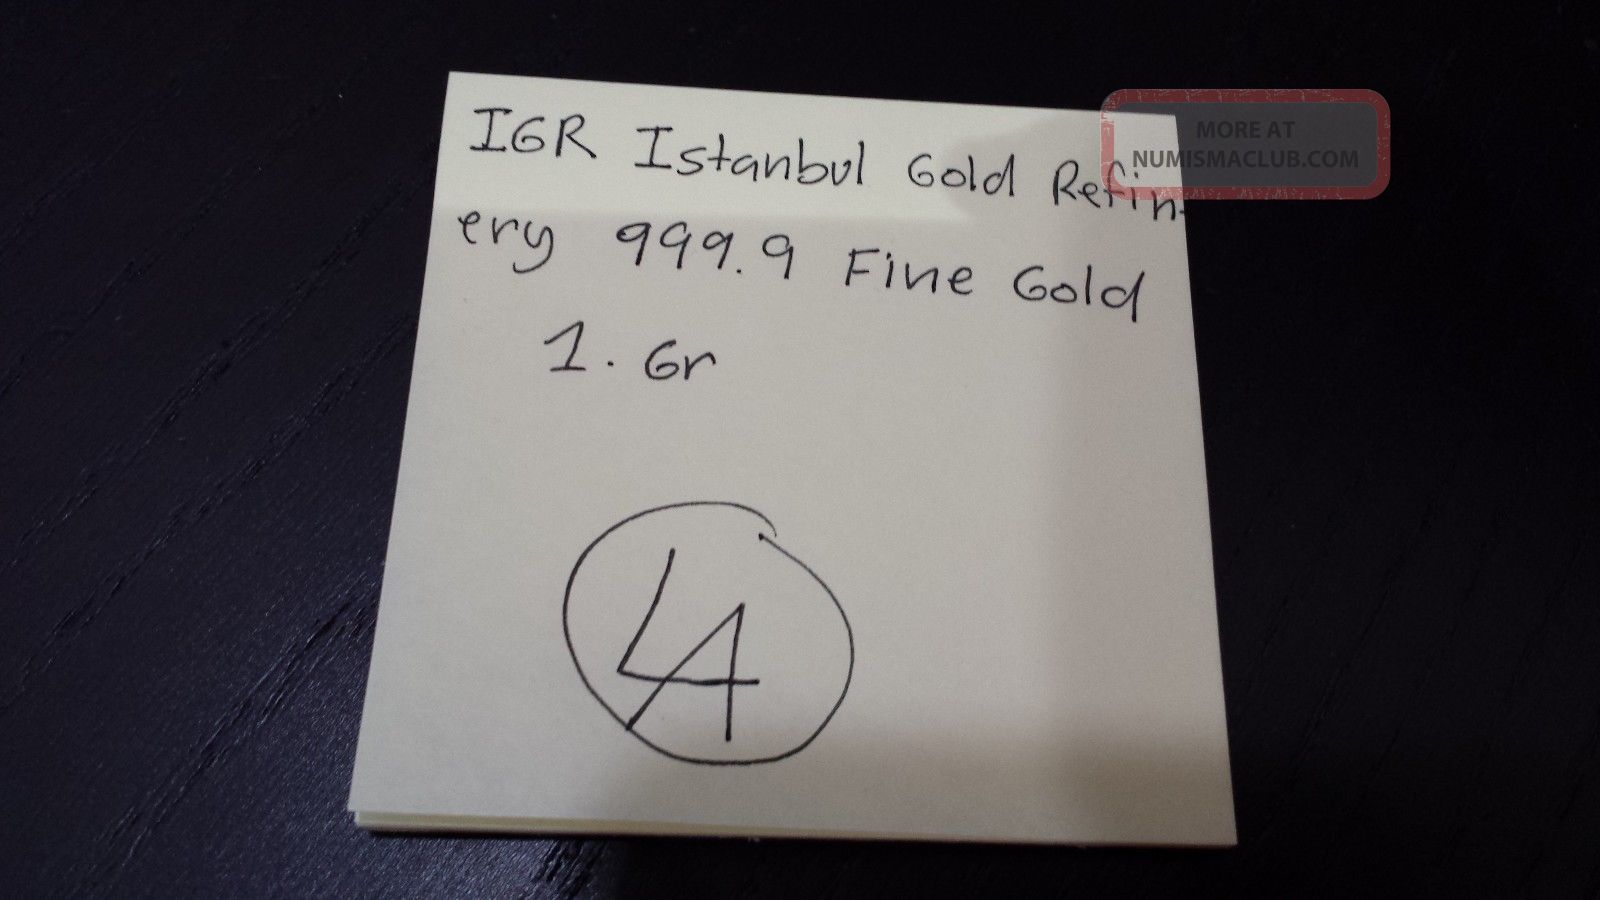 IGR Istanbul Gold Refin-
ery 999.9 Fine Gold
1. Gr
LA
MORE AT
NUMISMACLUB.COM